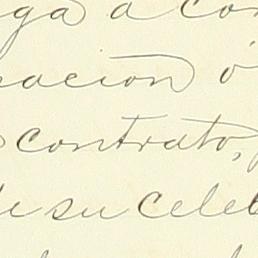 ga a con
acion ó
contrato,
de su celeb